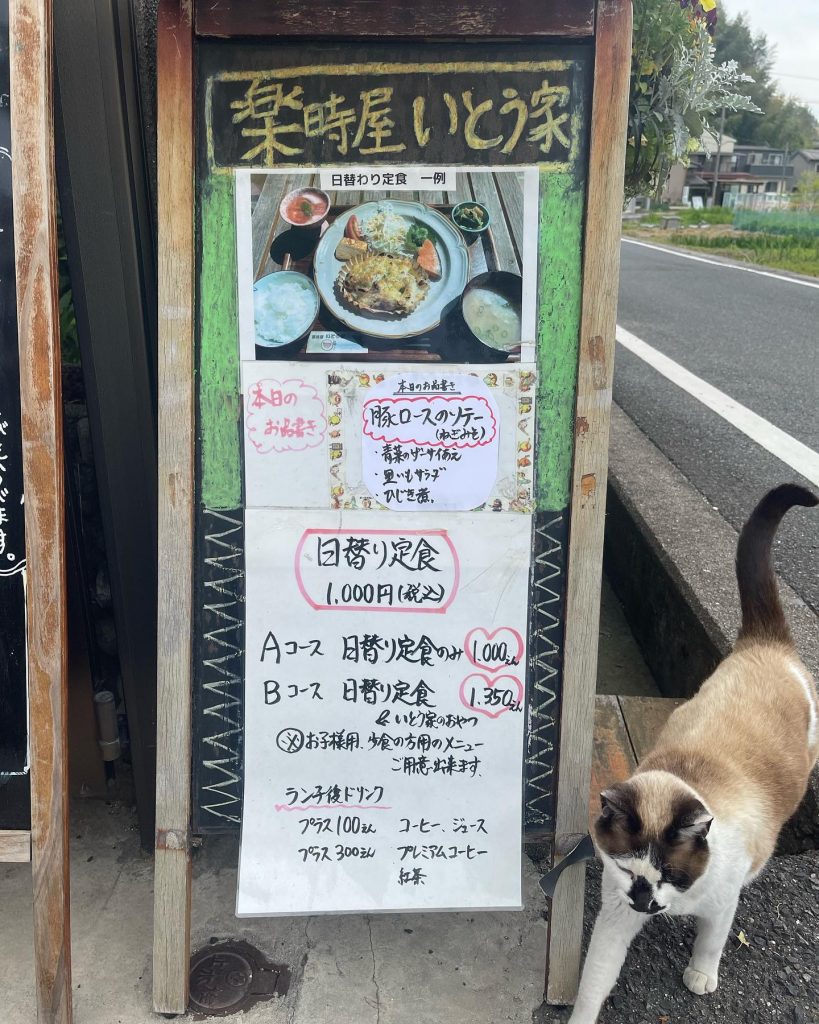 楽時屋 いとう家
日替わり定食 一例
本日の
お品書き
本日のお品書き
豚ロースのソテー
(ねぎみそ)
・青菜のザーサイあえ
・里いもサラダ
・ひじき煮。
日替り定食
1,000円(税込)
Aコース 日替り定食のみ 1.000えん
Bコース 日替り定食 1.350えん
& いとう家のおやつ
※お子様用、少食の方用のメニュー
ご用意出来ます。
ランチ後ドリンク
プラス100えん コーヒー、ジュース
プラス300えん プレミアムコーヒー
紅茶